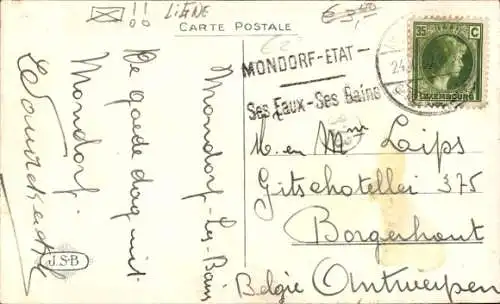 LIGNE
€3,00
CARTE POSTALE
35 C
LUXEMBOURG
MONDORF-ETAT-
Ses Eaux-Ses Bains
Mondorf-les-Bains
De goede dag uit
Mondorf
M. en Mme Laips
Gitschotellei 375
Borgerhout
Antwerpen
Belgie
J.S.B